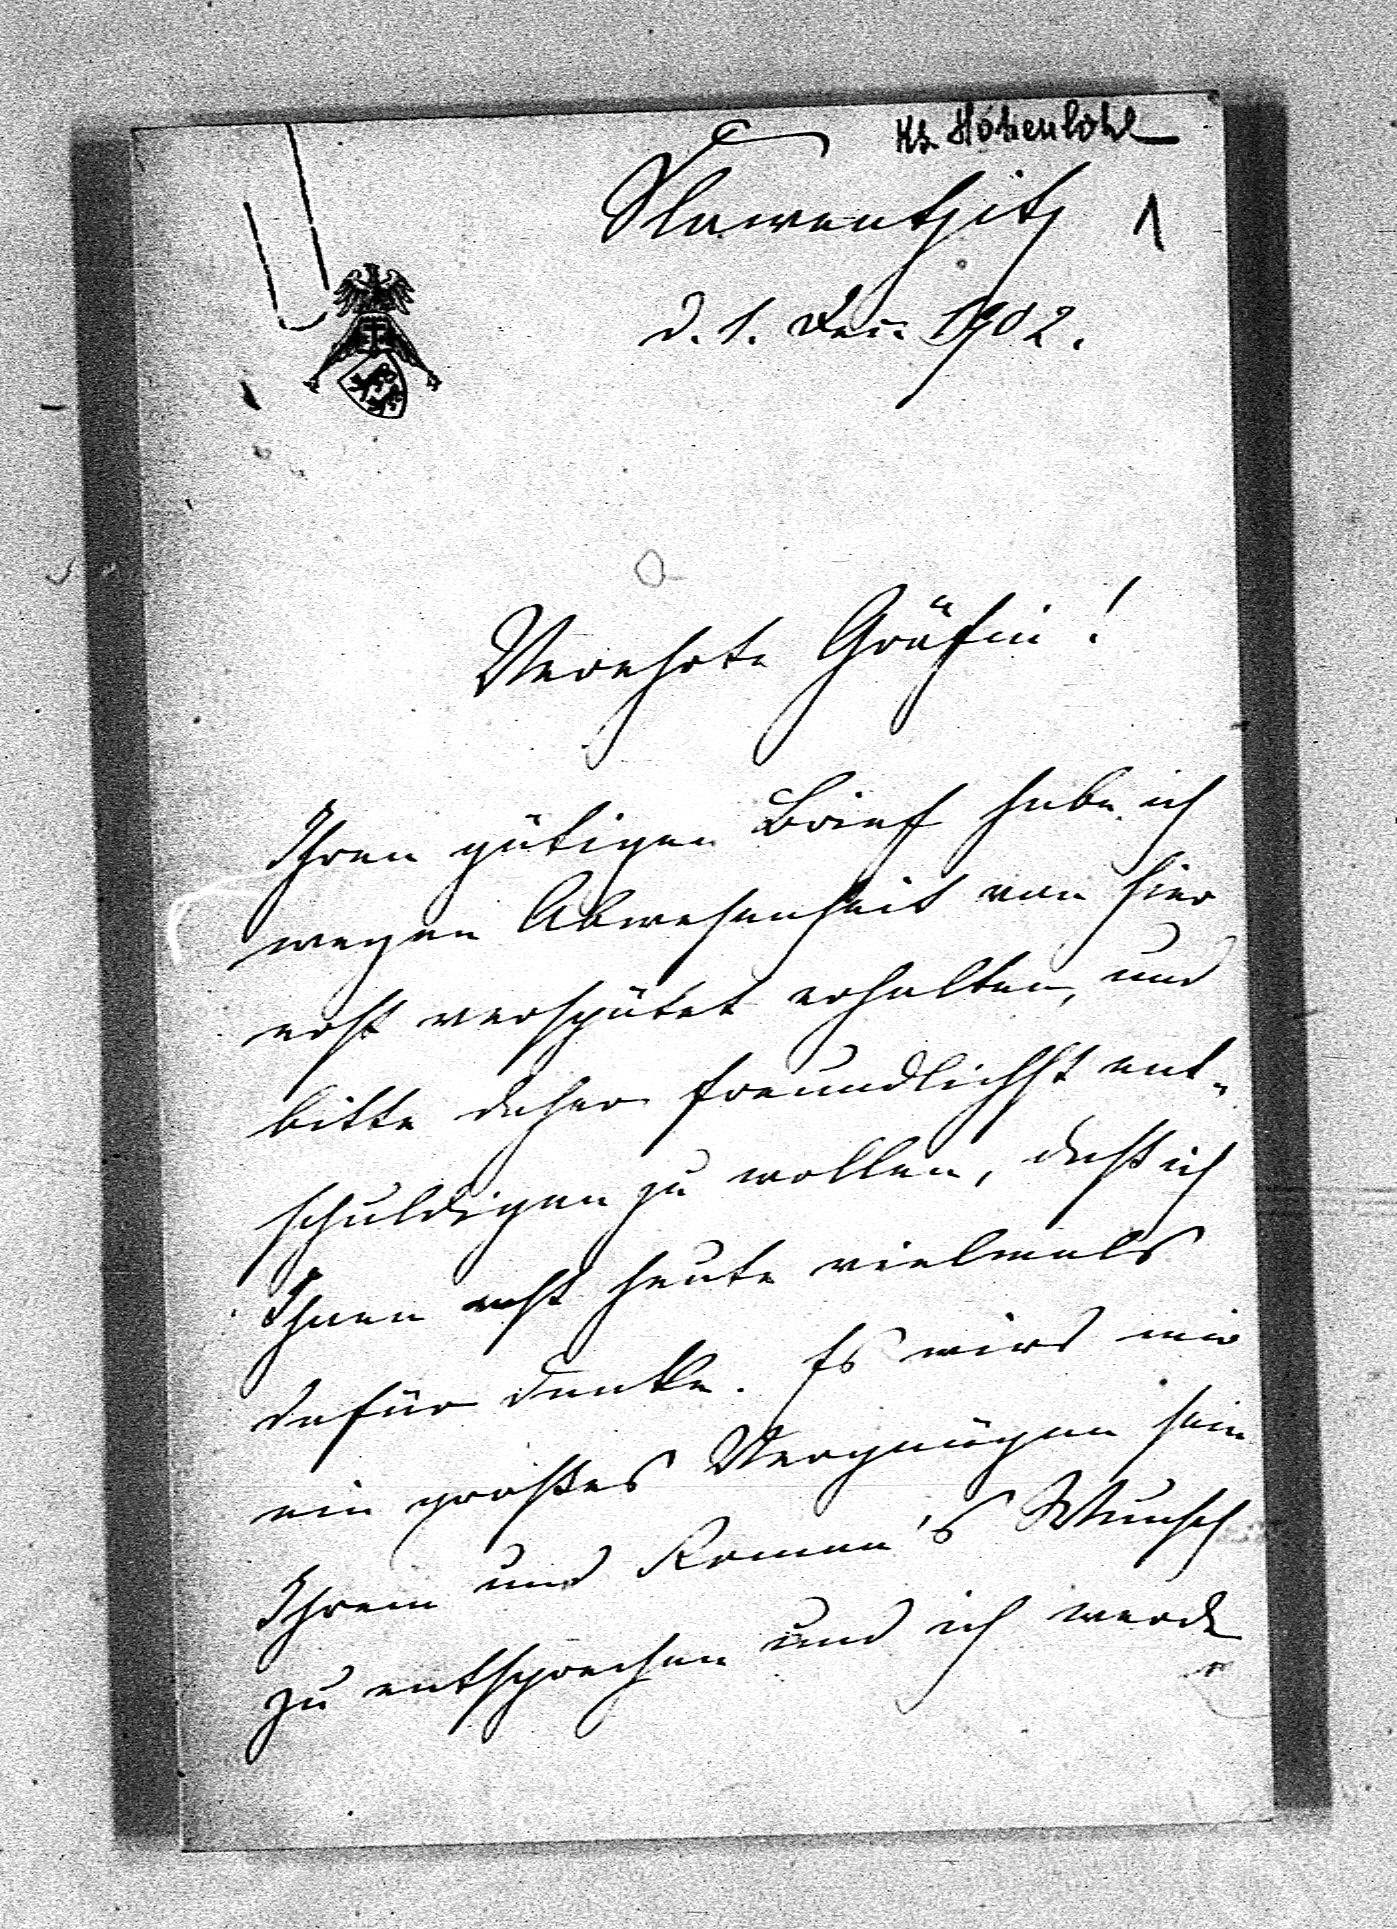 Ks. Hohenlohe
Slawentzitz 1
d. 1. Dez. 1902.
Verehrte Gräfin!
Ihren gütigen Brief habe ich
wegen Abwesenheit von hier
erst verspätet erhalten, und
bitte daher freundlichst ent-
schuldigen zu wollen, daß ich
Ihnen erst heute vielmals
dafür danke. Es wird mir
ein großes Vergnügen sein
Ihrem und Roman's Wunsch
zu entsprechen und ich werde